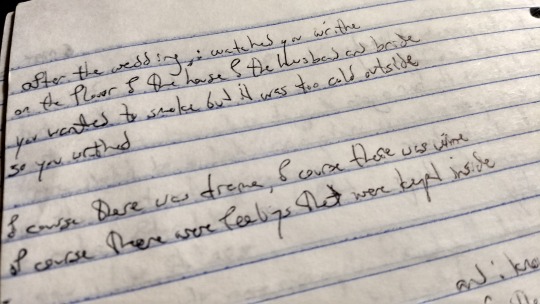 after the wedding, i watched you writhe
on the floor of the house of the husband and bride
you wanted to smoke but it was too cold outside
so you writhed
of course there was drama, of course there was wine
of course there were feelings that were kept inside
and i kno